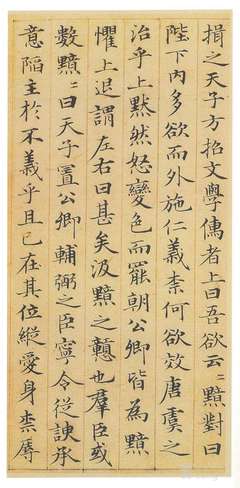 揖之天子方招文學儒者上曰吾欲云〻黯對曰
陛下内多欲而外施仁義柰何欲效唐虞之
治乎上黙然怒變色而罷朝公卿皆為黯
懼上退謂左右曰甚矣汲黯之戇也羣臣或
數黯〻曰天子置公卿輔弼之臣寧令從諛承
意陷主於不義乎且已在其位縱愛身柰辱